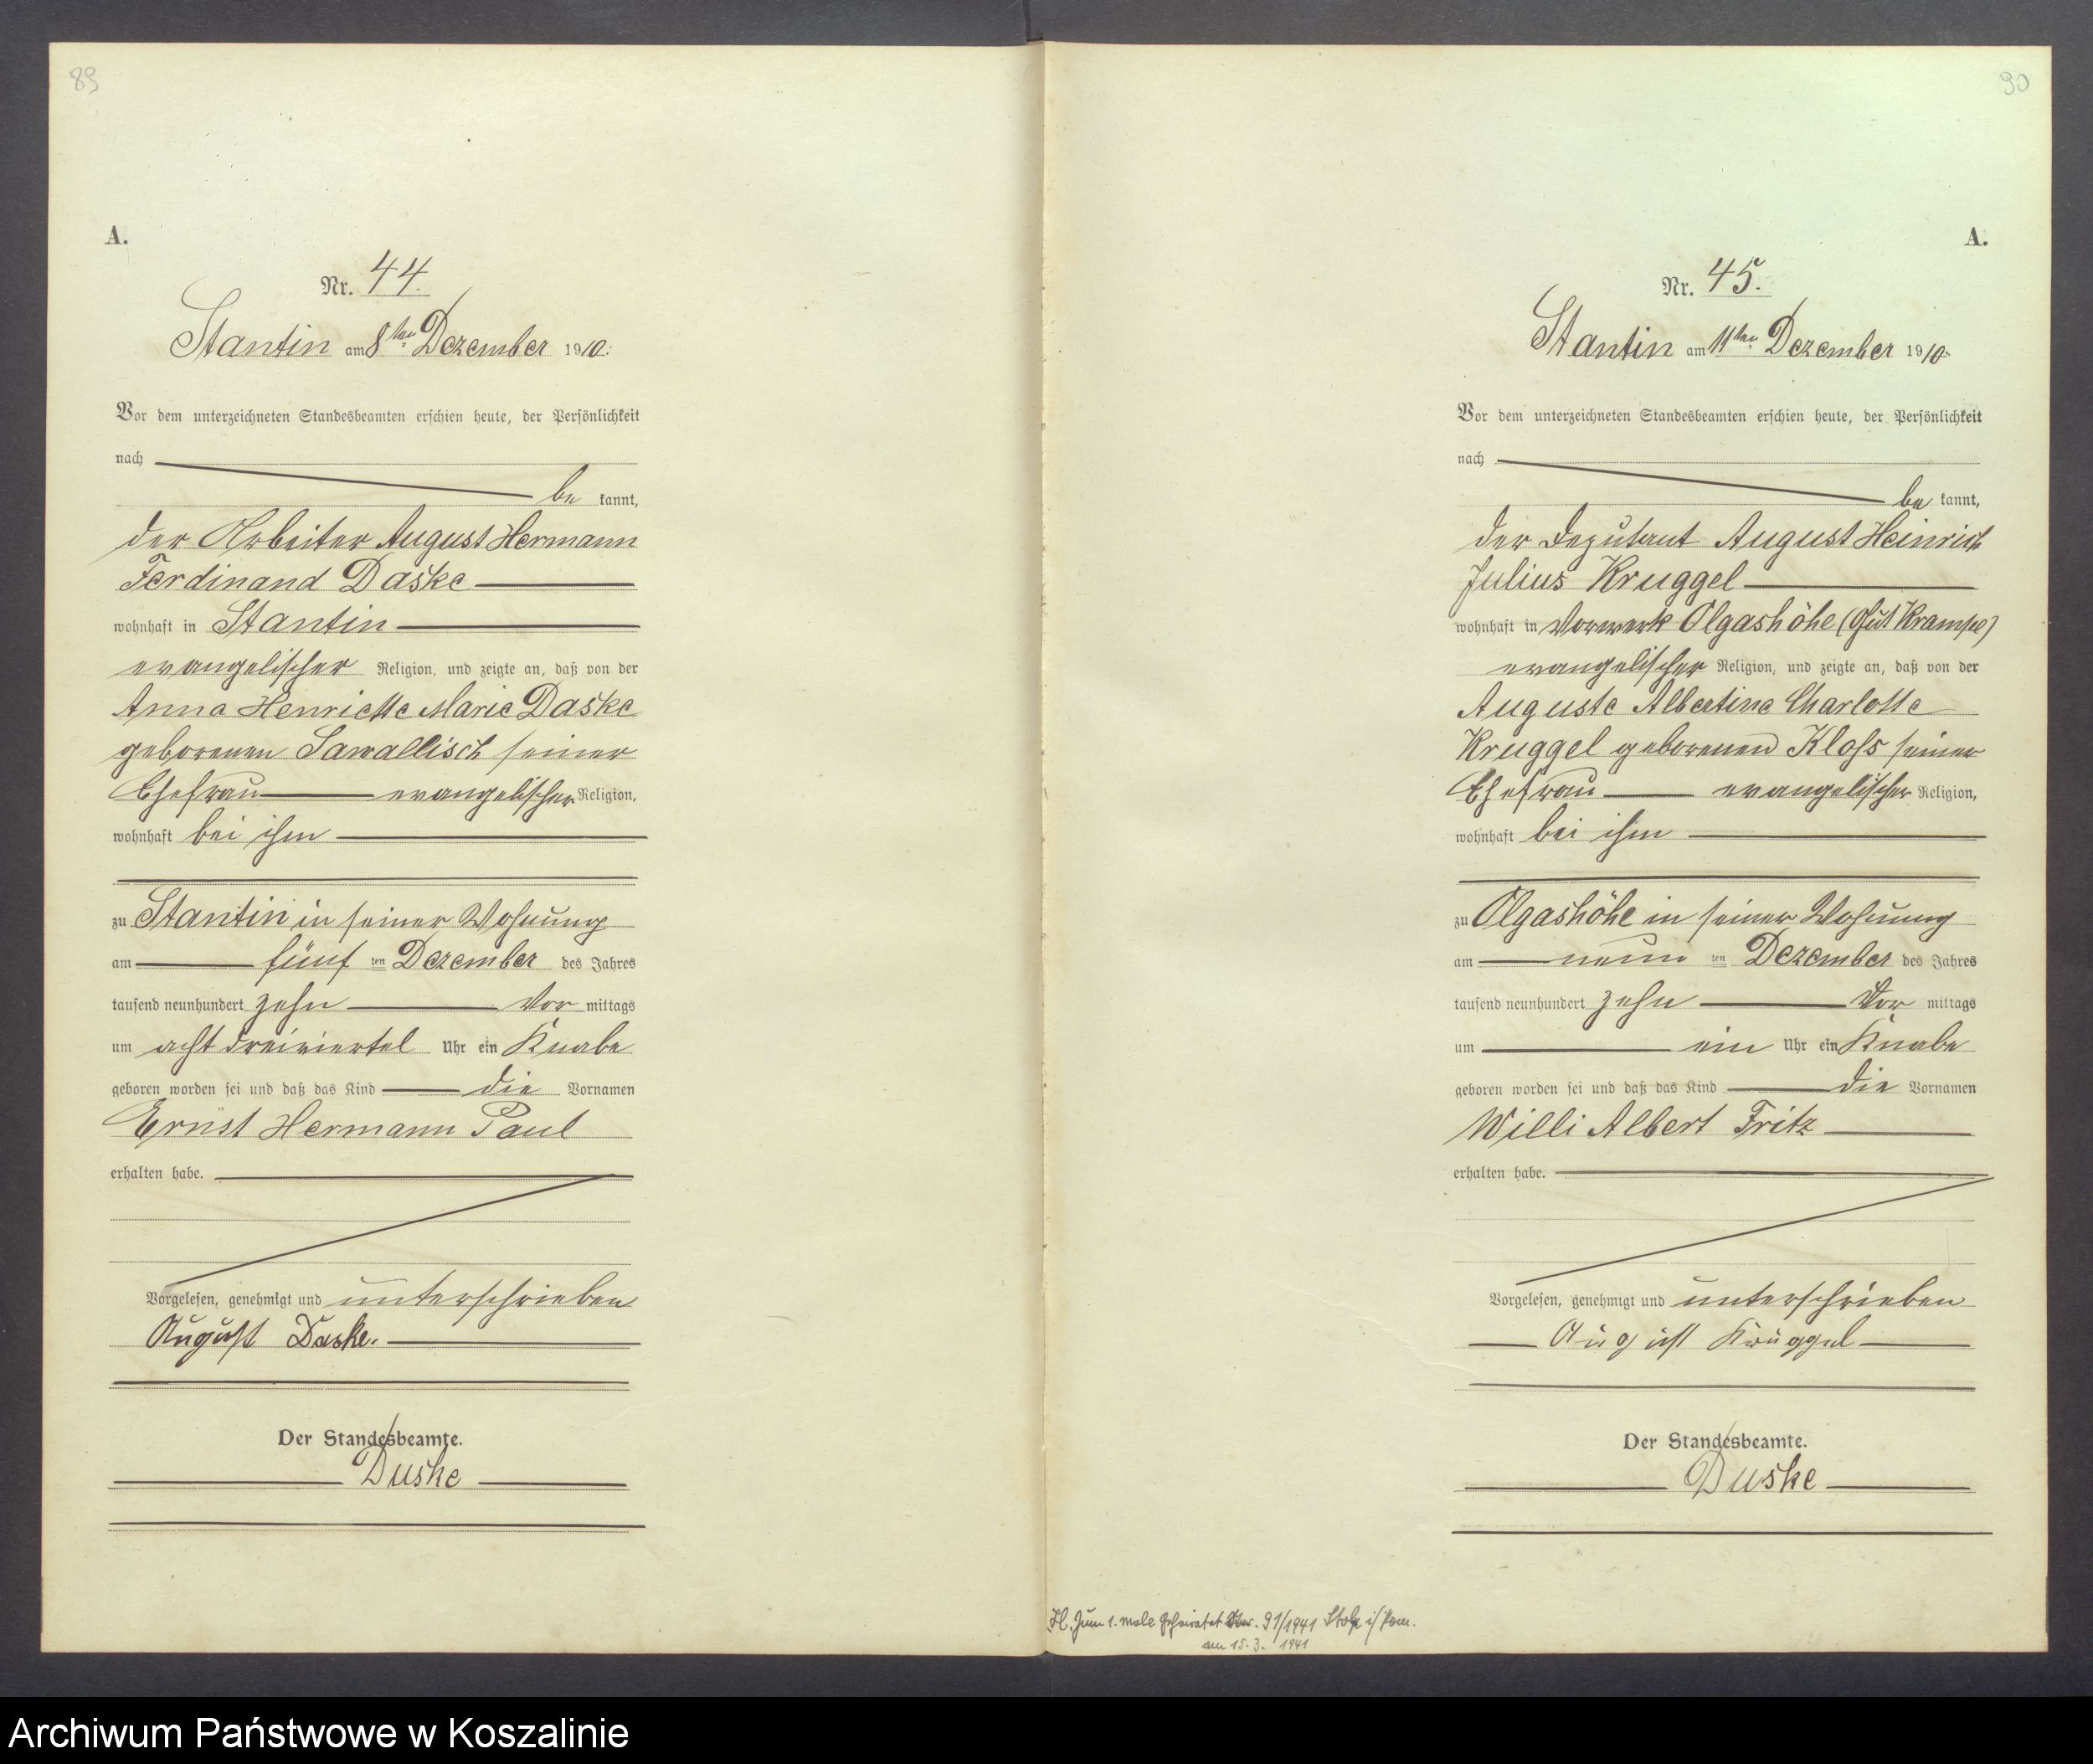 89
A.
Nr. 44.
Stantin am 8ten Dezember 1910.
Vor dem unterzeichneten Standesbeamten erschien heute, der Persönlichkeit
nach
be kannt,
der Arbeiter August Hermann
Ferdinand Daske
wohnhaft in Stantin
evangelischer Religion, und zeigte an, daß von der
Anna Henriette Marie Daske
geborenen Sawallisch seiner
Ehefrau evangelischer Religion,
wohnhaft bei ihm
zu Stantin in seiner Wohnung
am fünf ten Dezember des Jahres
tausend neunhundert zehn Vor mittags
um acht dreiviertel Uhr ein Knabe
geboren worden sei und daß das Kind die Vornamen
Ernst Hermann Paul
erhalten habe.
Vorgelesen, genehmigt und unterschrieben
August Daske.
Der Standesbeamte.
Duske
90
A.
Nr. 45.
Stantin am 11ten Dezember 1910.
Vor dem unterzeichneten Standesbeamten erschien heute, der Persönlichkeit
nach
be kannt,
der Deputant August Heinrich
Julius Kruggel
wohnhaft in Vorwerk Olgashöhe (Gut Krampe)
evangelischer Religion, und zeigte an, daß von der
Auguste Albertine Charlotte
Kruggel geborenen Kloß seiner
Ehefrau evangelischer Religion,
wohnhaft bei ihm
zu Olgashöhe in seiner Wohnung
am neun ten Dezember des Jahres
tausend neunhundert zehn Vor mittags
um ein Uhr ein Knabe
geboren worden sei und daß das Kind die Vornamen
Willi Albert Fritz
erhalten habe.
Vorgelesen, genehmigt und unterschrieben
August Krüggel
Der Standesbeamte.
Duske
Zum 1. male geheiratet 91/1941 Stolp i/Pom.
am 15. 3. 1941
Archiwum Państwowe w Koszalinie